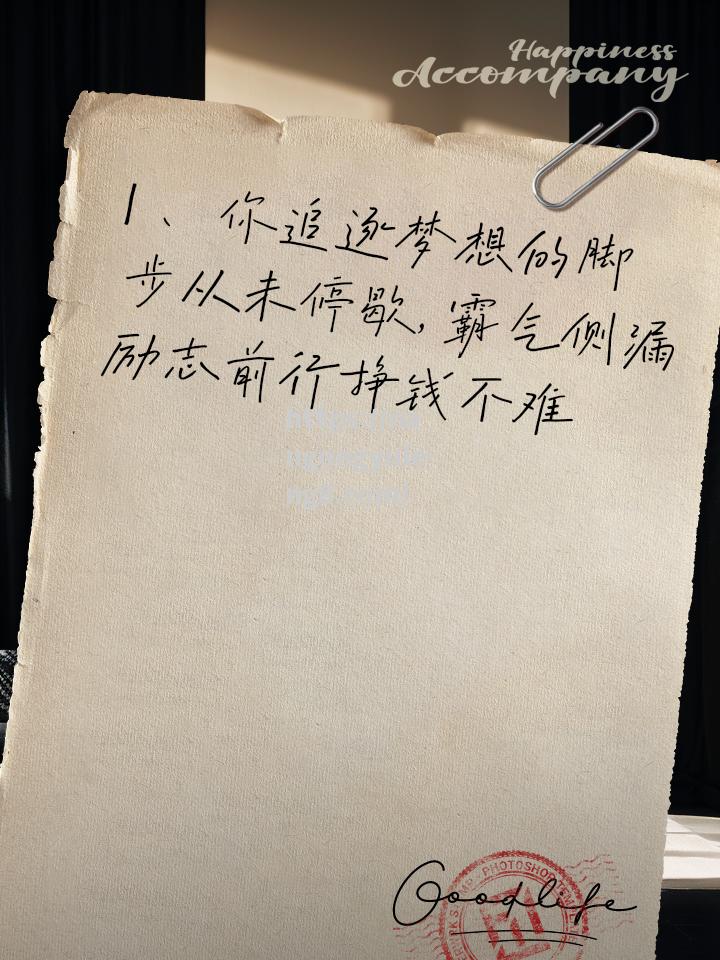 Happiness
Accompany
1、你追逐梦想的脚
步从未停歇,霸气侧漏
励志前行挣钱不难
Goodlife
PHOTOSHOP